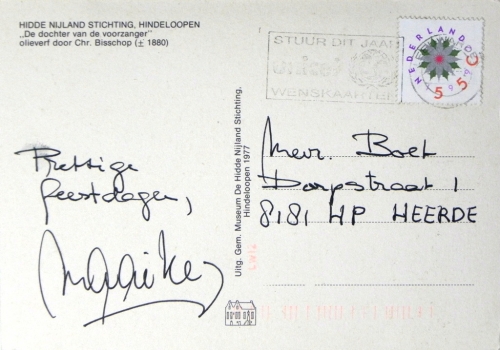 HIDDE NIJLAND STICHTING, HINDELOOPEN
„De dochter van de voorzanger"
olieverf door Chr. Bisschop (± 1880)
Prettige
feestdagen,
Maaike
Uitg. Gem. Museum De Hidde Nijland Stichting,
Hindeloopen 1977
STUUR DIT JAAR
WENSKAARTEN
NEDERLAND
55 C
Mevr. Boet
Dorpstraat 1
8181 HP HEERDE